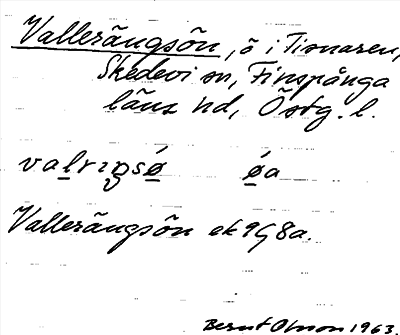 Vallerängsön, ö i Tisnaren,
Skedevi sn, Finspånga
läns hd, Östg. l.
valrıŋsø øa
Vallerängsön ek 9G8a.
Bernt Olsson 1963.